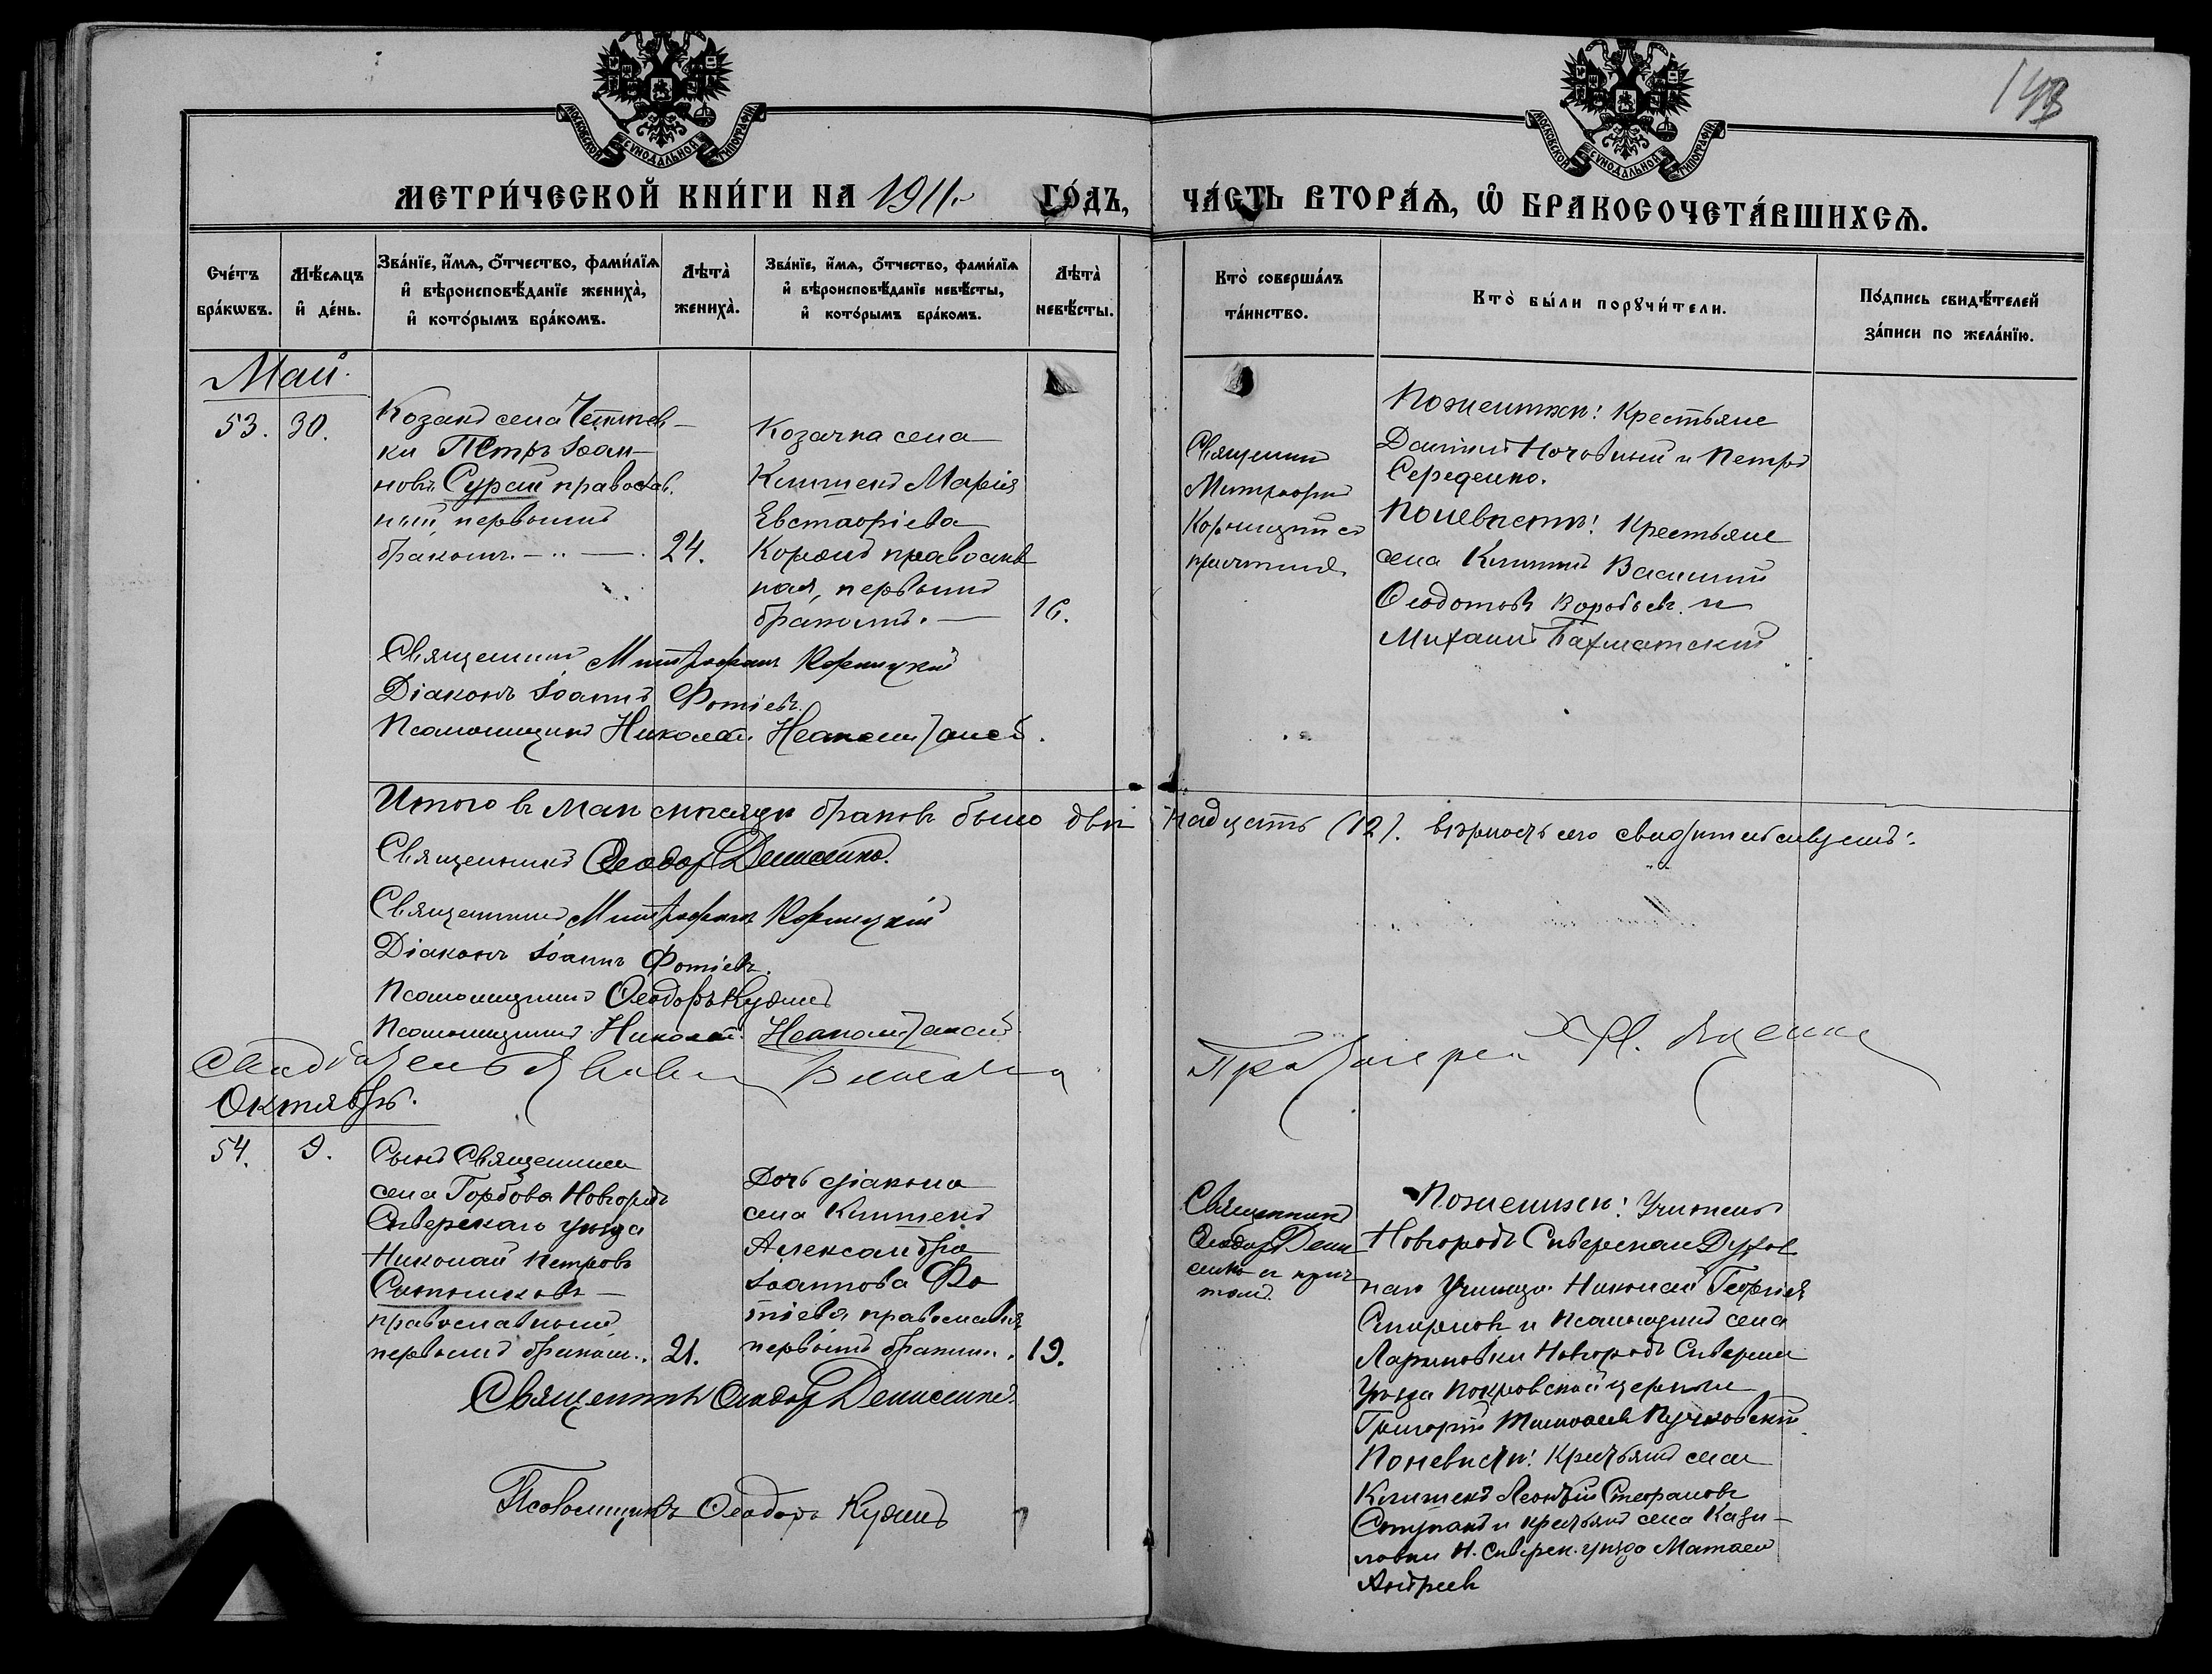 143
МОСКОВСКОЙ СѴНОДАЛЬНОЙ ТИПОГРАФІИ
МОСКОВСКОЙ СѴНОДАЛЬНОЙ ТИПОГРАФІИ
МЕТРИ́ЧЕСКОЙ КНИ́ГИ НА 1911 ГО́ДЪ,
ЧА́СТЬ ВТОРА́Ѧ, Ѡ҆ БРАКОСОЧЕТА́ВШИХСѦ.
Сче́тъ
бра́кѡвъ.
Мѣ́сѧцъ
и҆ де́нь.
Зва́нїе, и҆́мѧ, ѻ҆́тчество, фами́лїѧ
и҆ вѣроисповѣ́данїе жениха̀,
и҆ кото́рымъ бра́комъ.
Лѣта̀
жениха̀.
Зва́нїе, и҆́мѧ, ѻ҆́тчество, фами́лїѧ
и҆ вѣроисповѣ́данїе невѣ́сты,
и҆ кото́рымъ бра́комъ.
Лѣта̀
невѣ́сты.
Кто̀ соверша́лъ
та́инство.
Кто̀ бы́ли порꙋчи́тели.
По́дпись свидѣ́телей
за́писи по жела́нїю.
Май.
53.
30.
Козакъ села
ки Петръ Іоан-
новъ Сурай православ.
ный первымъ
бракомъ.
24.
Козачка села
Клишекъ Марія
Евстафіева
православ
ная, первымъ
бракомъ.
16.
Священникъ
Митрофанъ
Корницкій съ
причтомъ
По женихѣ: Крестьяне
и Петръ
Середенко.
По невѣстѣ: Крестьяне
села Клишекъ Василій
Ѳеодотовъ Воробьевъ и
Михаилъ Бахматскій
Священникъ Митрофанъ Корницкій
Діаконъ Іоаннъ Фотіевъ.
Псаломщикъ Николай
Итого въ маѣ мѣсяцѣ браковъ было двѣ
надцать (12). вѣрность сего свидѣтельствуемъ:
Священникъ Ѳеодоръ Денисенко.
Священникъ Митрофанъ Корницкій
Діаконъ Іоаннъ Фотіевъ.
Псаломщикъ Ѳеодоръ
Псаломщикъ Николай
Октябрь.
54.
9.
Сынъ Священника
села Горбова Новгородъ
Сѣверскаго уѣзда
Николай Петровъ
православный
первымъ бракомъ.
21.
Дочь діакона
села Клишекъ
Александра
Іоаннова Фо
тіева православная
первымъ бракомъ.
19.
Священникъ
Ѳеодоръ Дени
сенко съ прич
томъ.
По женихѣ: Учитель
Новгородъ Сѣверскаго Духов
наго Училища Николай Георгіев
Смирновъ и Псаломщикъ села
Новгородъ Сѣверск
Уѣзда Покровской церкви
Григорій
По невѣстѣ: Крестьянинъ села
Клишекъ Леонтій Стефановъ
и крестьянинъ села
Н. Сѣверск. уѣзда
Андреевъ
Священникъ Ѳеодоръ Денисенко
Псаломщикъ Ѳеодоръ